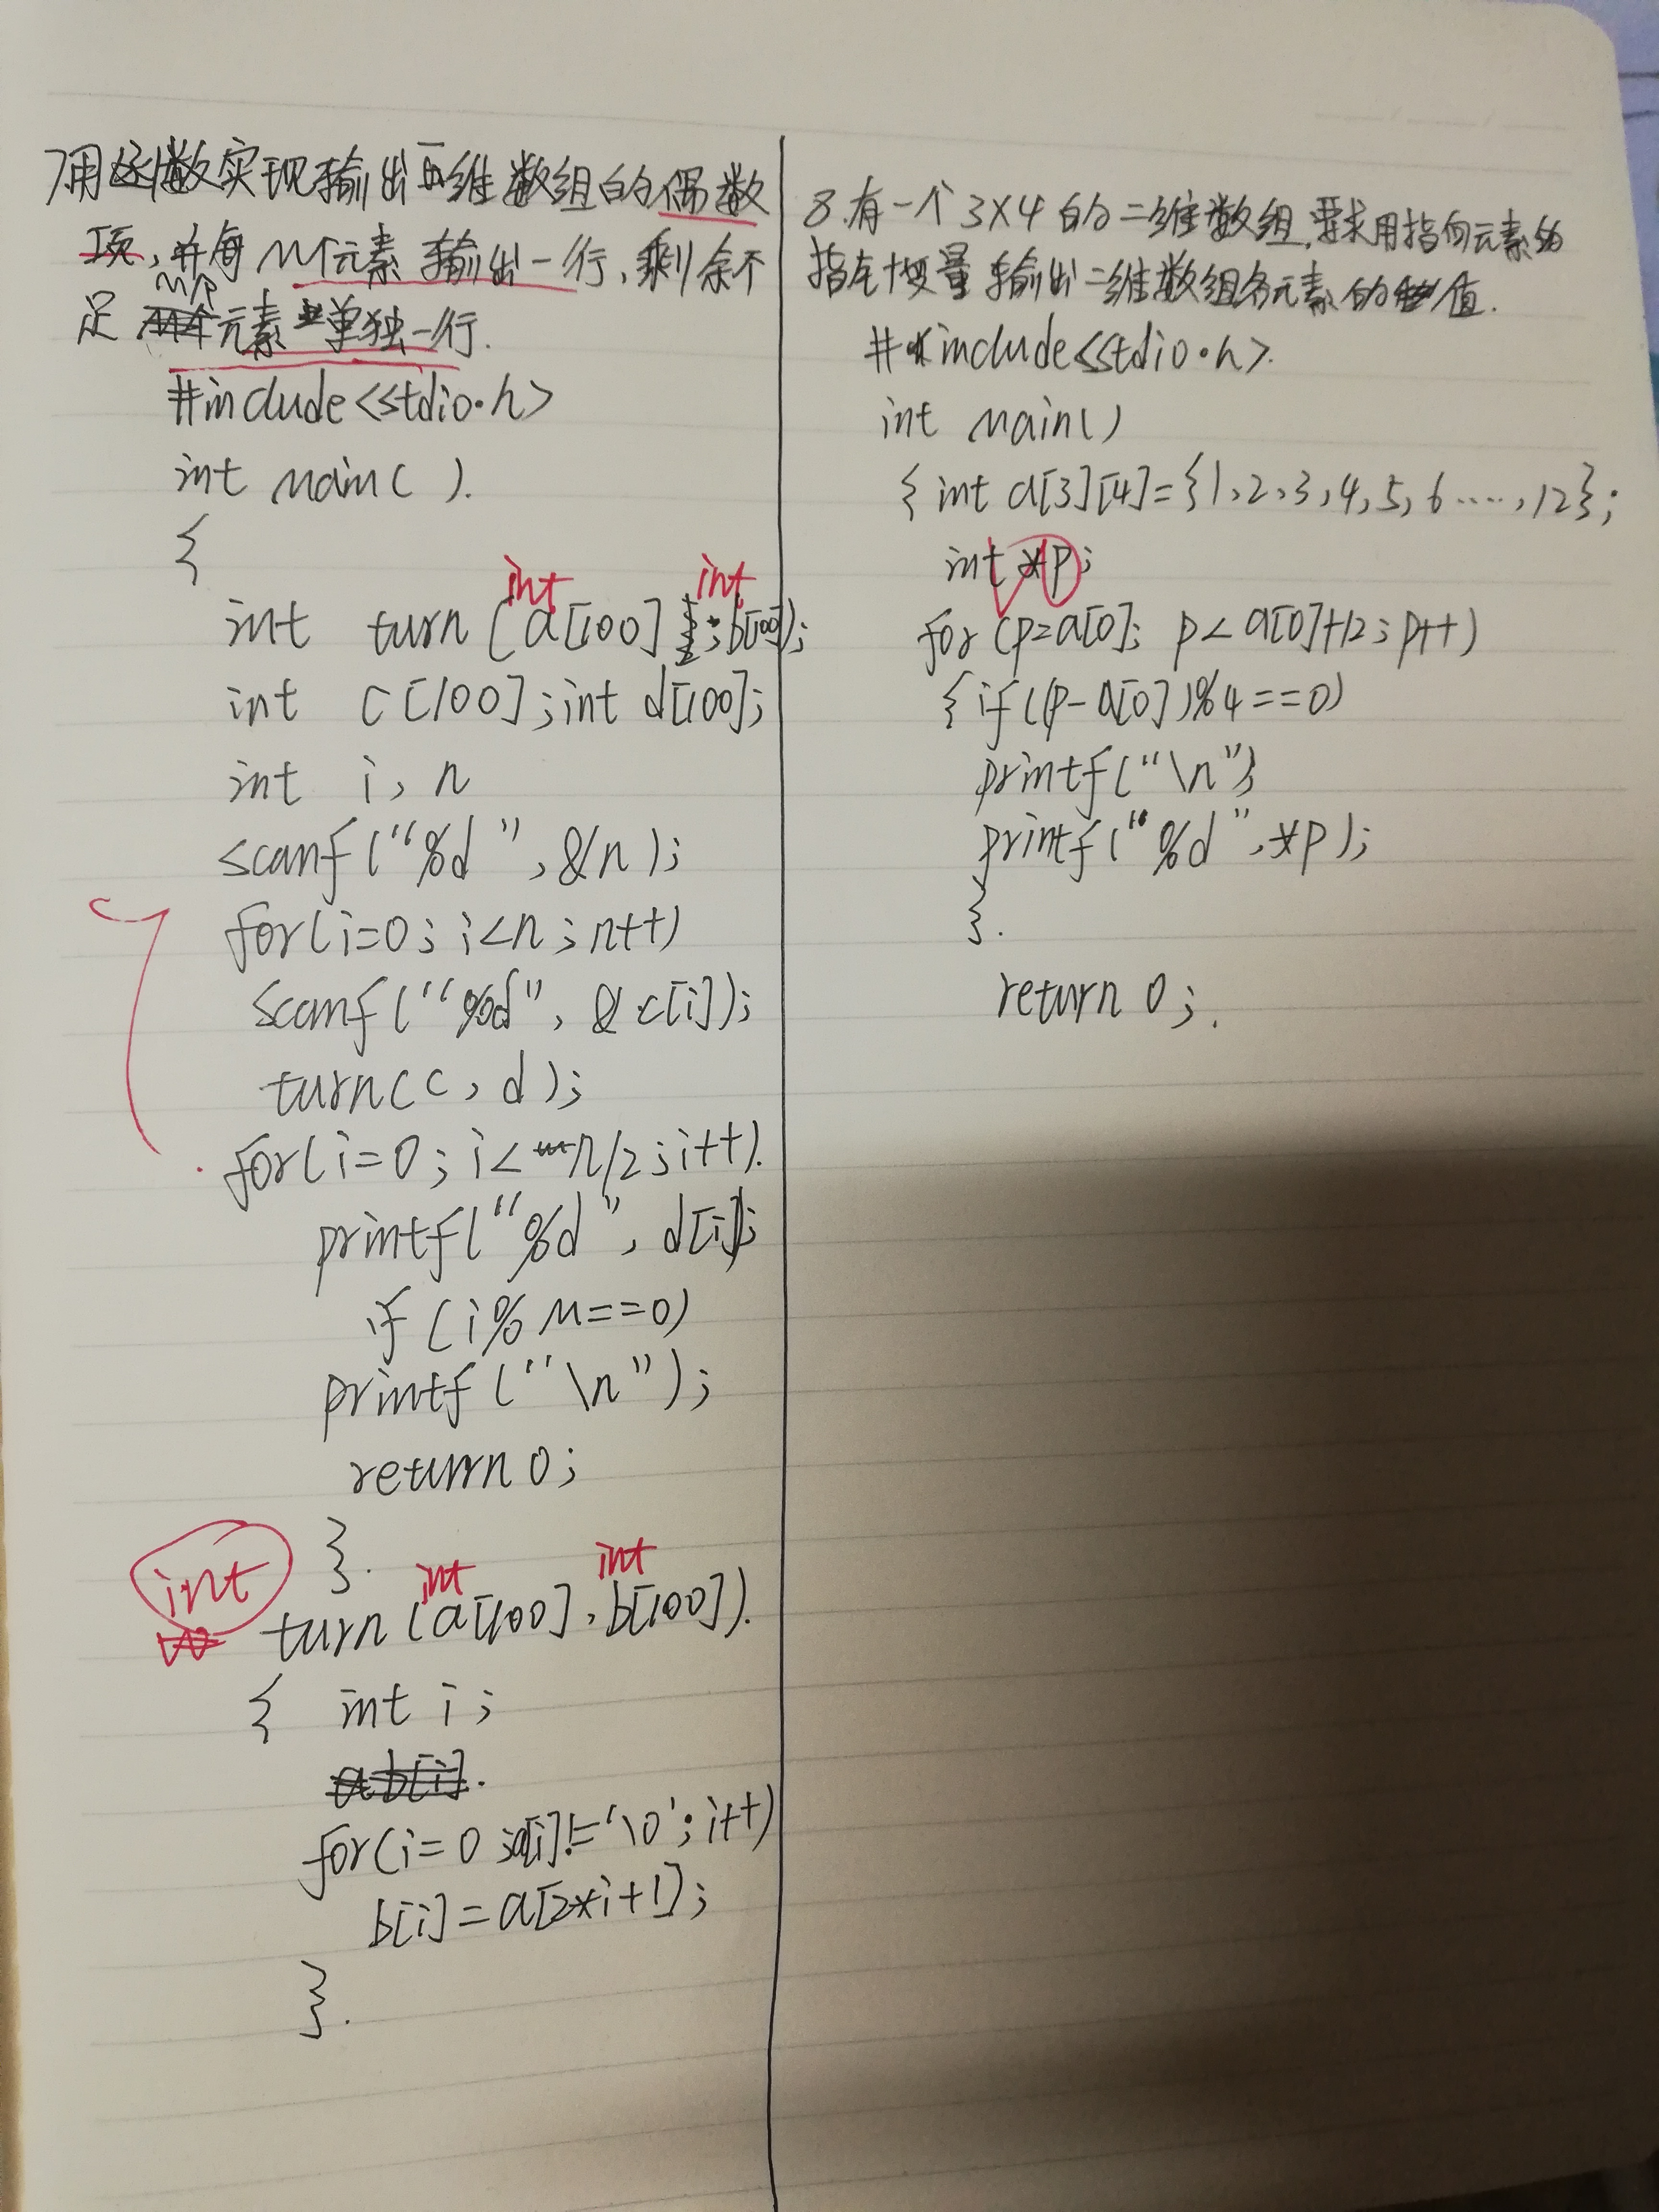 7用函数实现输出一维数组的偶数
项,并每M个元素输出一行,剩余不
足M个元素单独一行.
#include<stdio.h>
int main( ).
{
int turn(int a[100];int b[100]);
int c[100];int d[100];
int i, n
scanf("%d",&n);
for(i=0;i<n;n++)
scanf("%d",&c[i]);
turn(c,d);
for(i=0;i<n/2;i++).
printf("%d",d[i]);
if(i%M==0)
printf("\n");
return 0;
}.
int turn(int a[100],int b[100]).
{ int i;
for(i=0;a[i]!='\0';i++)
b[i]=a[2*i+1];
}.
8.有一个3X4的二维数组,要求用指向元素的
指针变量输出二维数组各元素的值.
#include<stdio.h>.
int main()
{int a[3][4]={1,2,3,4,5,6....,12};
int *p;
for(p=a[0]; p<a[0]+12;p++)
{if((p-a[0])%4==0)
printf("\n");
printf("%d",*p);
}.
return 0;.